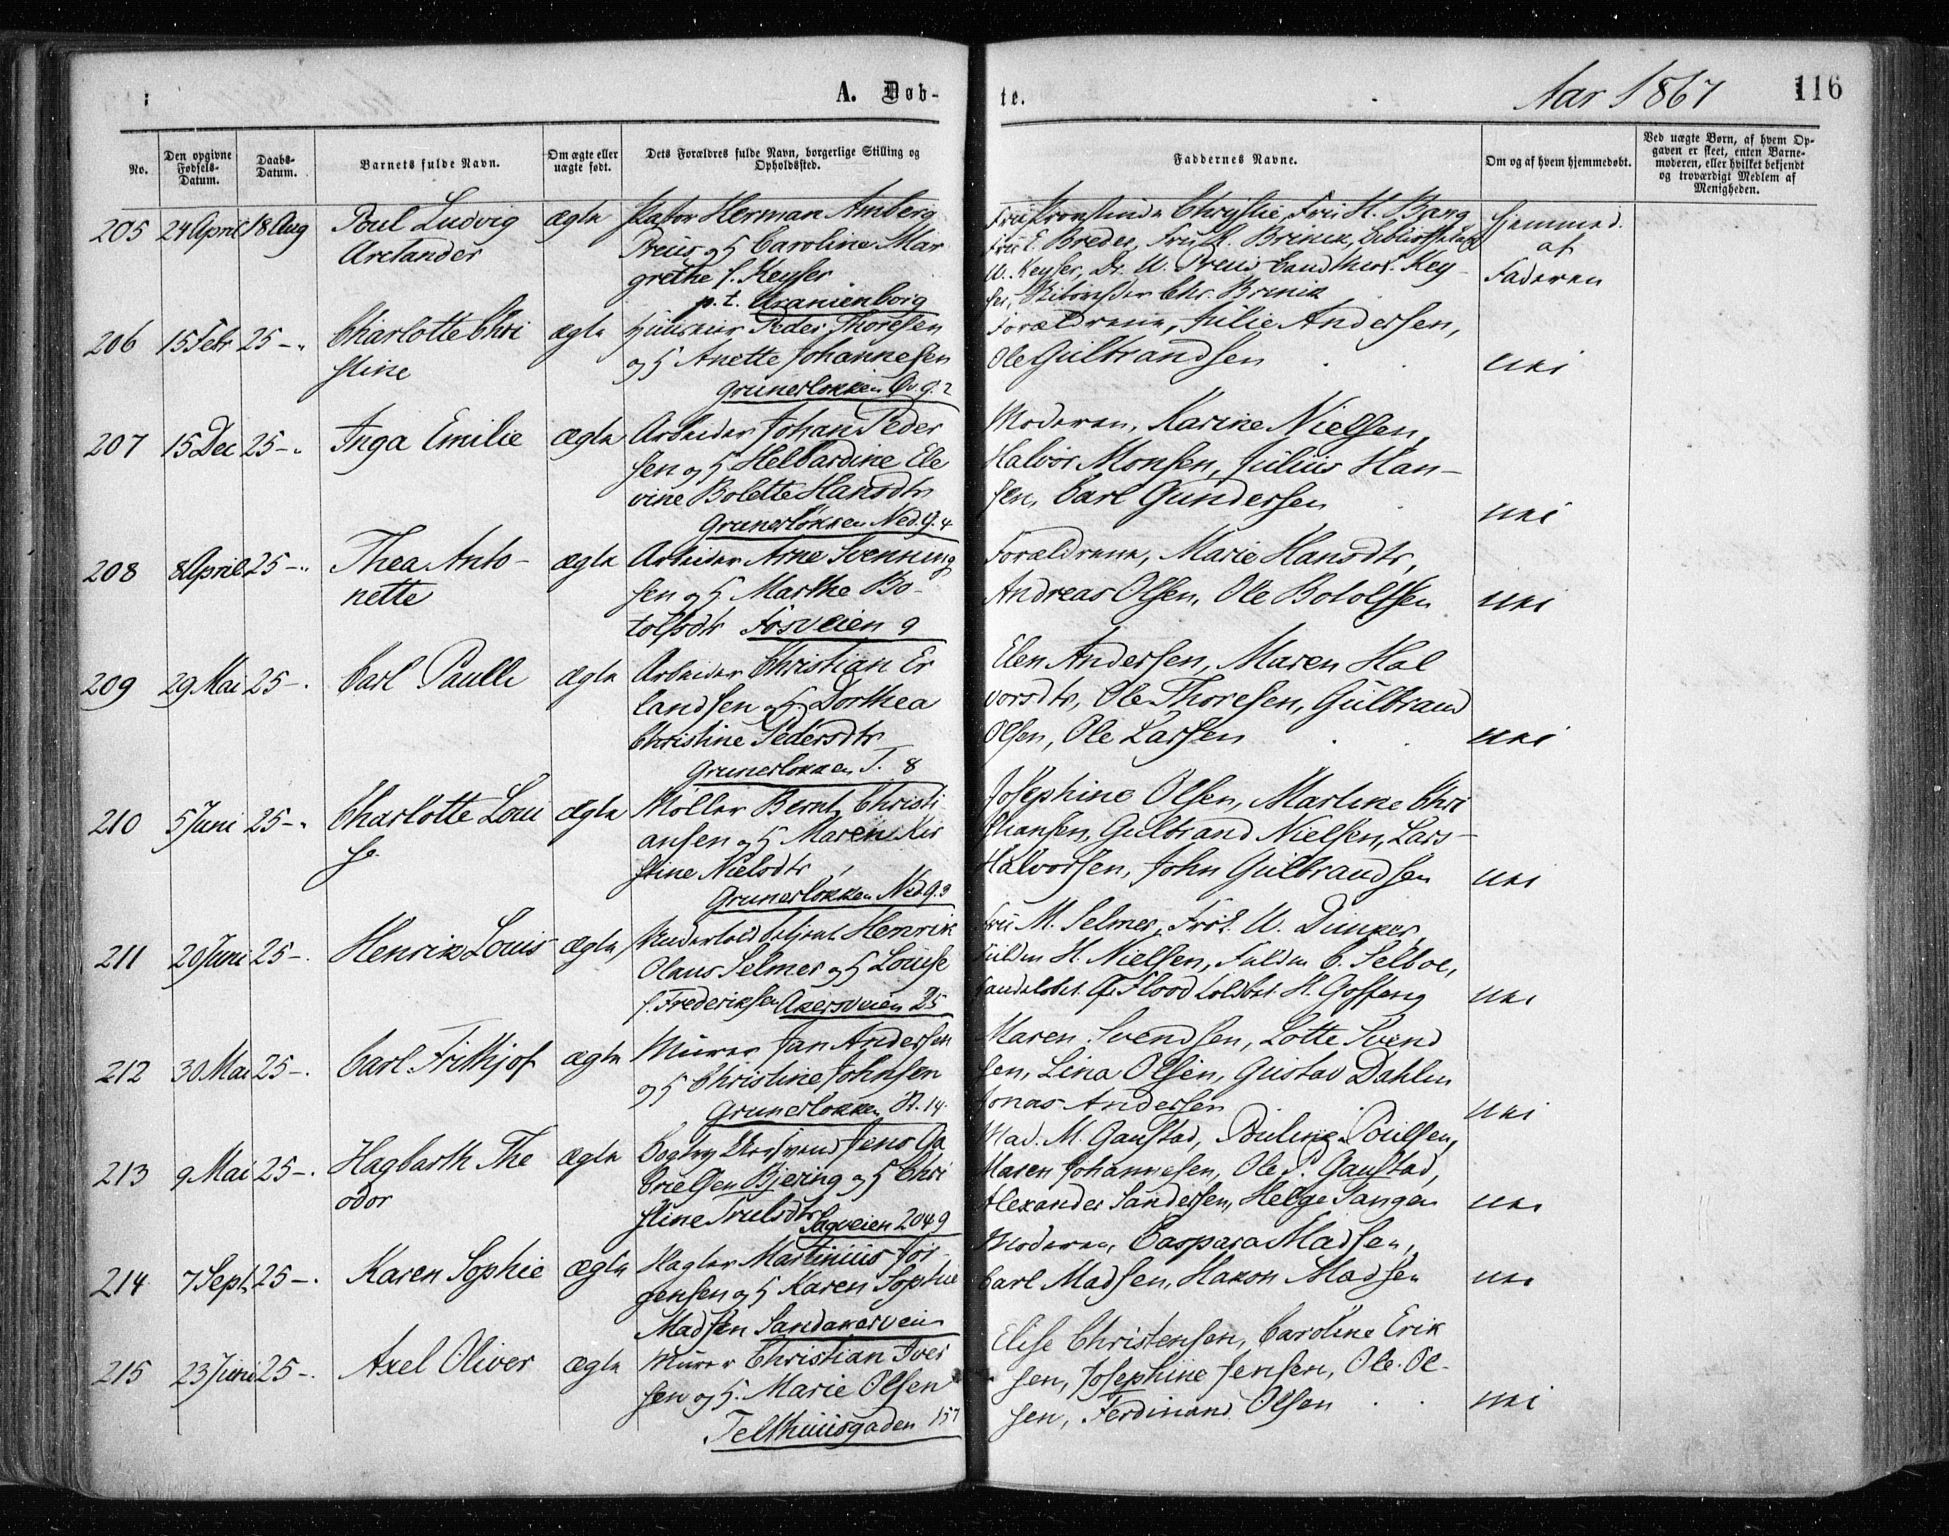 A. Døb-
te.
Aar 1867
116
No.
Den opgivne Fødsels-Datum.
Daabs-Datum.
Barnets fulde Navn.
Om ægte eller uægte født.
Dets Forældres fulde Navn, borgerlige Stilling og Opholdssted.
Faddernes Navne.
Om og af hvem hjemmedøbt.
Ved uægte Børn, af hvem Op-
gaven er skeet, enten Barne-
moderen, eller hvilket bekjendt
og troværdigt Medlem af
Menigheden.
205 24 April 18 Aug Poul Ludvig ægte Pastor Herman Amberg
Arctander Preus og H Caroline Mar
grethe f. Keyser
p.t. Uranienborg
Fru Chrystie, Fru H. Bang
Fru E. Breder, Fru Brinck,
W. Keyser, Dr. W. Preus Cand Key-
ser, Chr. Brinck
Hjemmed.
af
Faderen
206 15 Febr 25 -" Charlotte Chri ægte Huuseier Peder Thoresen
stine og H Anette Johannesen
Grunerløkken Øv.g. 2
Forældrene, Julie Andersen,
Ole Gulbrandsen nei
207 15 Dec 25 -" Inga Emilie ægte Arbeider Johan Peder
sen og H Helbardine Ele
vine Bolette Hansdtr
Grunerløkken Ned.g. 4
Moderen, Karine Nielsen,
Halvor Monsen, Julius Han-
sen, Carl Gundersen nei
208 8 April 25 -" Thea Anto- ægte Arbeider Arne Svenning
nette sen og H Marthe Bo-
tolfsdtr Fosveien 9
Forældrene, Marie Hansdtr,
Andreas Olsen, Ole Botolfsen nei
209 29 Mai 25 -" Carl Paulle ægte Arbeider Christian Er
landsen og H Dorthea
Christine Pedersdtr
Grunerløkken T. 8
Elen Andersen, Maren Hal
vorsdtr, Ole Thoresen, Gulbrand
Olsen, Ole Larsen nei
210 5 Juni 25 -" Charlotte Loui ægte Møller Bernt Christi
se ansen og H Maren Kir
stine Nielsdtr
Grunerløkken Ned.g. 9
Josephine Olsen, Martine Chri
stiansen, Gulbrand Nielsen, Lars
Halvorsen, John Gulbrandsen nei
211 20 Juni 25 -" Henrik Louis ægte Undertoldbetjent Henrik
Olaus Selmer og H Louise
f. Frederiksen Akersveien 25
Fru M. Selmer, Frøk. W. Dunker,
H. Nielsen, C. Selboe,
Flood Toldbet. H. nei
212 30 Mai 25 -" Carl Frithjof ægte Murer Jan Andersen
og H Christine Johnsen
Grunerløkken St. 14
Maren Svendsen, Lotte Svend
sen, Lina Olsen, Gustav Dahlen
Jonas Andersen nei
213 9 Mai 25 -" Hagbarth The ægte Jens Ga
odor brielsen Bjering og H Chri
stine Trulsdtr Sagveien 2049
Mad. M. Gaustad, Pouline Poulsen,
Maren Johannesen, Ole P. Gaustad,
Alexander Sandersen, Helge Sangen nei
214 7 Sept. 25 -" Karen Sophie ægte Martinius Jør-
gensen og H Karen Sophie
Madsen Sandakerveien
Moderen, Caspara Madsen,
Carl Madsen, Hakon Madsen nei
215 23 Juni 25 -" Axel Oliver ægte Murer Christian Iver
sen og H. Marie Olsen
Telthuusgaden 157
Elise Christensen, Caroline Erik
sen, Josephine Jensen, Ole Ol-
sen, Ferdinand Olsen nei